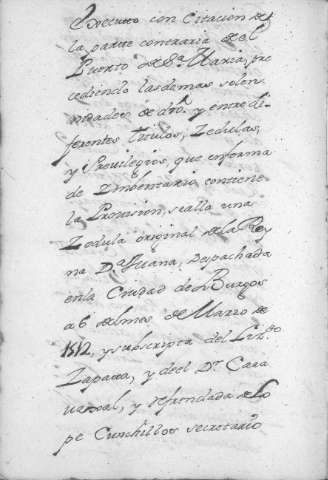 Executto con Citacion de
la parte contraria de el
Puerto de Sta. Maria, pre
cediendo las demas solem
nidades de dro. y entre di
ferentes titulos, Zedulas,
y Privilegios, que en forma
de Ymbentario contiene
la Provision, se alla una
Zedula original de la Rey
na Da. Juana, despachada
en la Ciudad de Burgos
a 6 del mes de Marzo de
1512, y subscripta del Lizdo.
Zapata, y de el Dr. Cara
uaxal, y refrendada de Lo
pe Cunchillos secretario